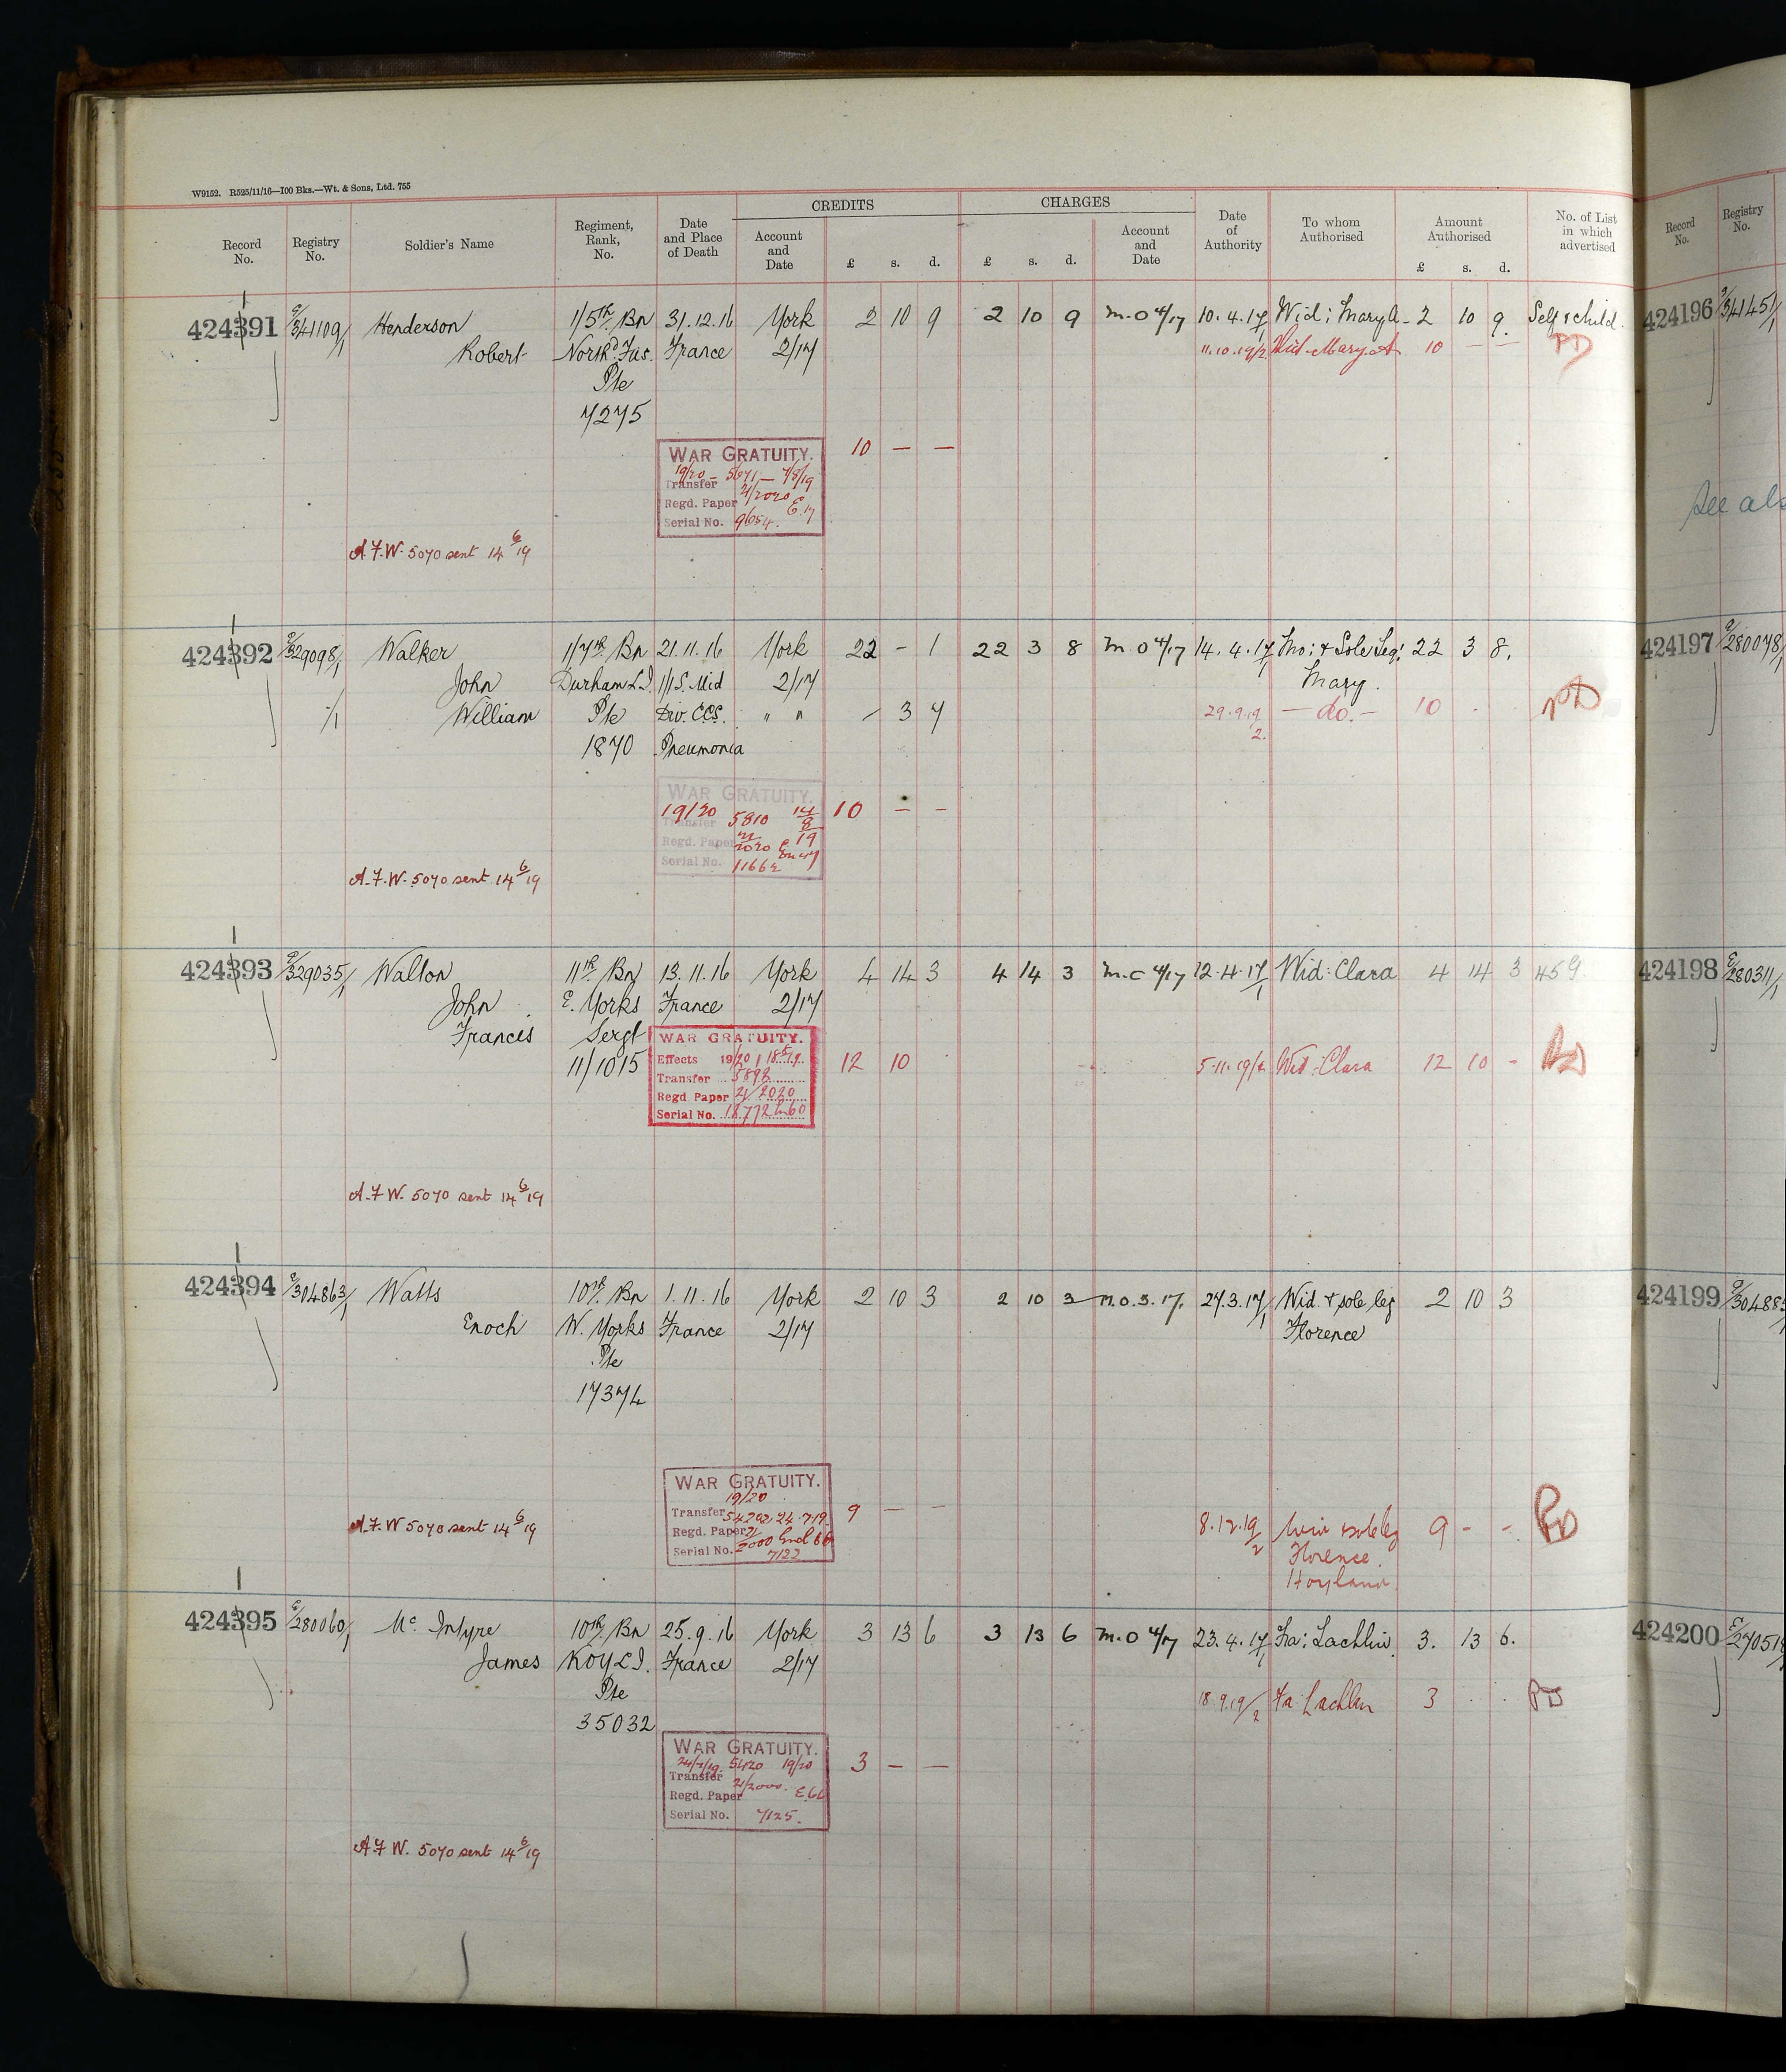 W9152. R525/11/16—100 Bks.—Wt. & Sons, Ltd. 755
CREDITS CHARGES
Record No. Registry No. Soldier's Name Regiment, Rank, No. Date and Place of Death Account and Date £ s. d. £ s. d. Account and Date Date of Authority To whom Authorised Amount Authorised £ s. d. No. of List in which advertised
424391 E/341109/1 Henderson 1/5th Bn 31.12.16 York 2 10 9 2 10 9 M.O 4/17 10.4.17/1 Wid: Mary A. 2 10 9. Self & child.
Robert North'd Fus. France 2/17 11.10.19/2 Wid. Mary A 10 — — PD
Pte
7275
WAR GRATUITY. 10 — —
19/20 - 5671 - 7/8/19
Transfer
Regd. Paper 21/2020 E.17
Serial No. 9654.
A.F.W. 5070 sent 14/6/19
424392 E/329098/1 Walker 1/7th Bn 21.11.16 York 22 - 1 22 3 8 M.O 4/17 14.4.17/1 Mo: & Sole Leg: 22 3 8.
John Durham L.I. 1/1 S. Mid 2/17 Mary.
William Pte Div. CCS. " " - 3 7 29.9.19/2. — do. — 10 PD
1870 Pneumonia
WAR GRATUITY.
19/20 5810 14/8/19 10 — —
Transfer
Regd. Paper 21/2020
Serial No. 11662
A.F.W. 5070 sent 14/6/19
424393 E/329035/1 Walton 11th Bn 13.11.16 York 4 14 3 4 14 3 M.O 4/17 12.4.17/1 Wid: Clara 4 14 3 459
John E. Yorks France 2/17
Frances Sergt
11/1015
WAR GRATUITY.
Effects 19/20
Transfer 5892 12 10 5.11.19/2 Wid: Clara 12 10 - PD
Regd Paper 21/2020
Serial No. 18772
A.F.W. 5070 sent 14/6/19
424394 E/304863/1 Watts 10th Bn 1.11.16 York 2 10 3 2 10 3 M.O.3.17. 27.3.17/1 Wid. & sole leg 2 10 3
Enoch W. Yorks France 2/17 Florence
Pte
17374
WAR GRATUITY.
19/20
Transfer 24.7.19 9 — —
Regd. Paper 21/2000
Serial No. 7122
A.F.W 5070 sent 14/6/19 8.12.19/2 Wid & sole leg 9 - - PD
Florence
Hoyland.
424395 E/280060/1 Mc Intyre 10th Bn 25.9.16 York 3 13 6 3 13 6 M.O 4/17 23.4.17/1 Fa: Lachlin 3. 13 6.
James KOYLI. France 2/17
Pte 18.9.19/2 Fa Lachlin 3 PD
35032
WAR GRATUITY.
24/7/19 5420 19/20 3 — —
Transfer
Regd. Paper 21/2000. E.66
Serial No. 7125.
A.F.W. 5070 sent 14/6/19
Record No. Registry No.
424196 E/341451/1
See als
424197 E/280078/1
424198 E/280311/1
424199 E/30488
424200 E/270518